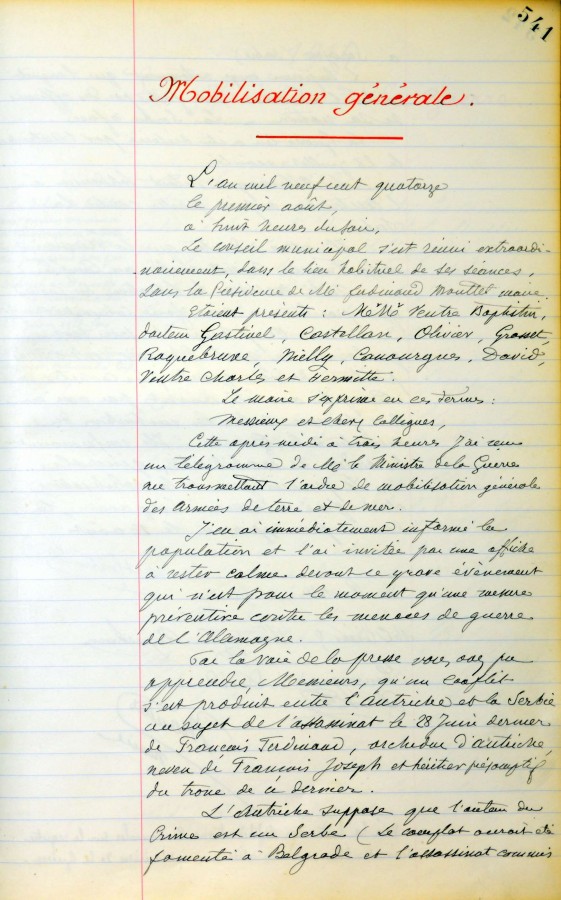 541
Mobilisation générale.
L'an mil neuf cent quatorze
le premier août,
à huit heures du soir,
Le conseil municipal s'est réuni extraordi-
nairement, dans le lieu habituel de ses séances,
sous la Présidence de Mr Ferdinand Mouttet maire.
Etaient présents : MrMrs Ventre Baptistin,
docteur Gastinel, Castellan, Olivier, Grosset,
Roquebrune, Nielly, Canourgues, David,
Ventre Charles et Hermitte.
Le maire s'exprime en ces termes :
Messieurs et chers Collègues,
Cette après midi à trois heures j'ai reçu
un télégramme de Mr le Ministre de la Guerre
me transmettant l'ordre de mobilisation générale
des Armées de terre et de mer.
J'en ai immédiatement informé la
population et l'ai invitée par une affiche
à rester calme devant ce grave évènement
qui n'est pour le moment qu'une mesure
préventive contre les menaces de guerre
de l'Alamagne.
Par la voie de la presse vous avez pu
apprendre, Messieurs, qu'un conflit
s'est produit entre l'Autriche et la Serbie
au sujet de l'assassinat le 28 Juin dernier
de François Ferdinand, archiduc d'Autriche,
neveu de François Joseph et héritier présomptif
du trone de ce dernier.
L'Autriche suppose que l'auteur du
Crime est un Serbe (Le complot aurait été
fomenté à Belgrade et l'assassinat commis